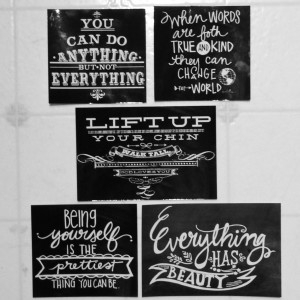 YOU
CAN DO
ANYTHING
BUT NOT
EVERYTHING
When WORDS
are both
TRUE AND KIND
they can
CHANGE
THE WORLD
LIFT UP
YOUR CHIN
WALK TALL
GOD LOVES YOU
Being
yourself
IS THE
prettiest
THING YOU CAN BE.
Everything
HAS
BEAUTY